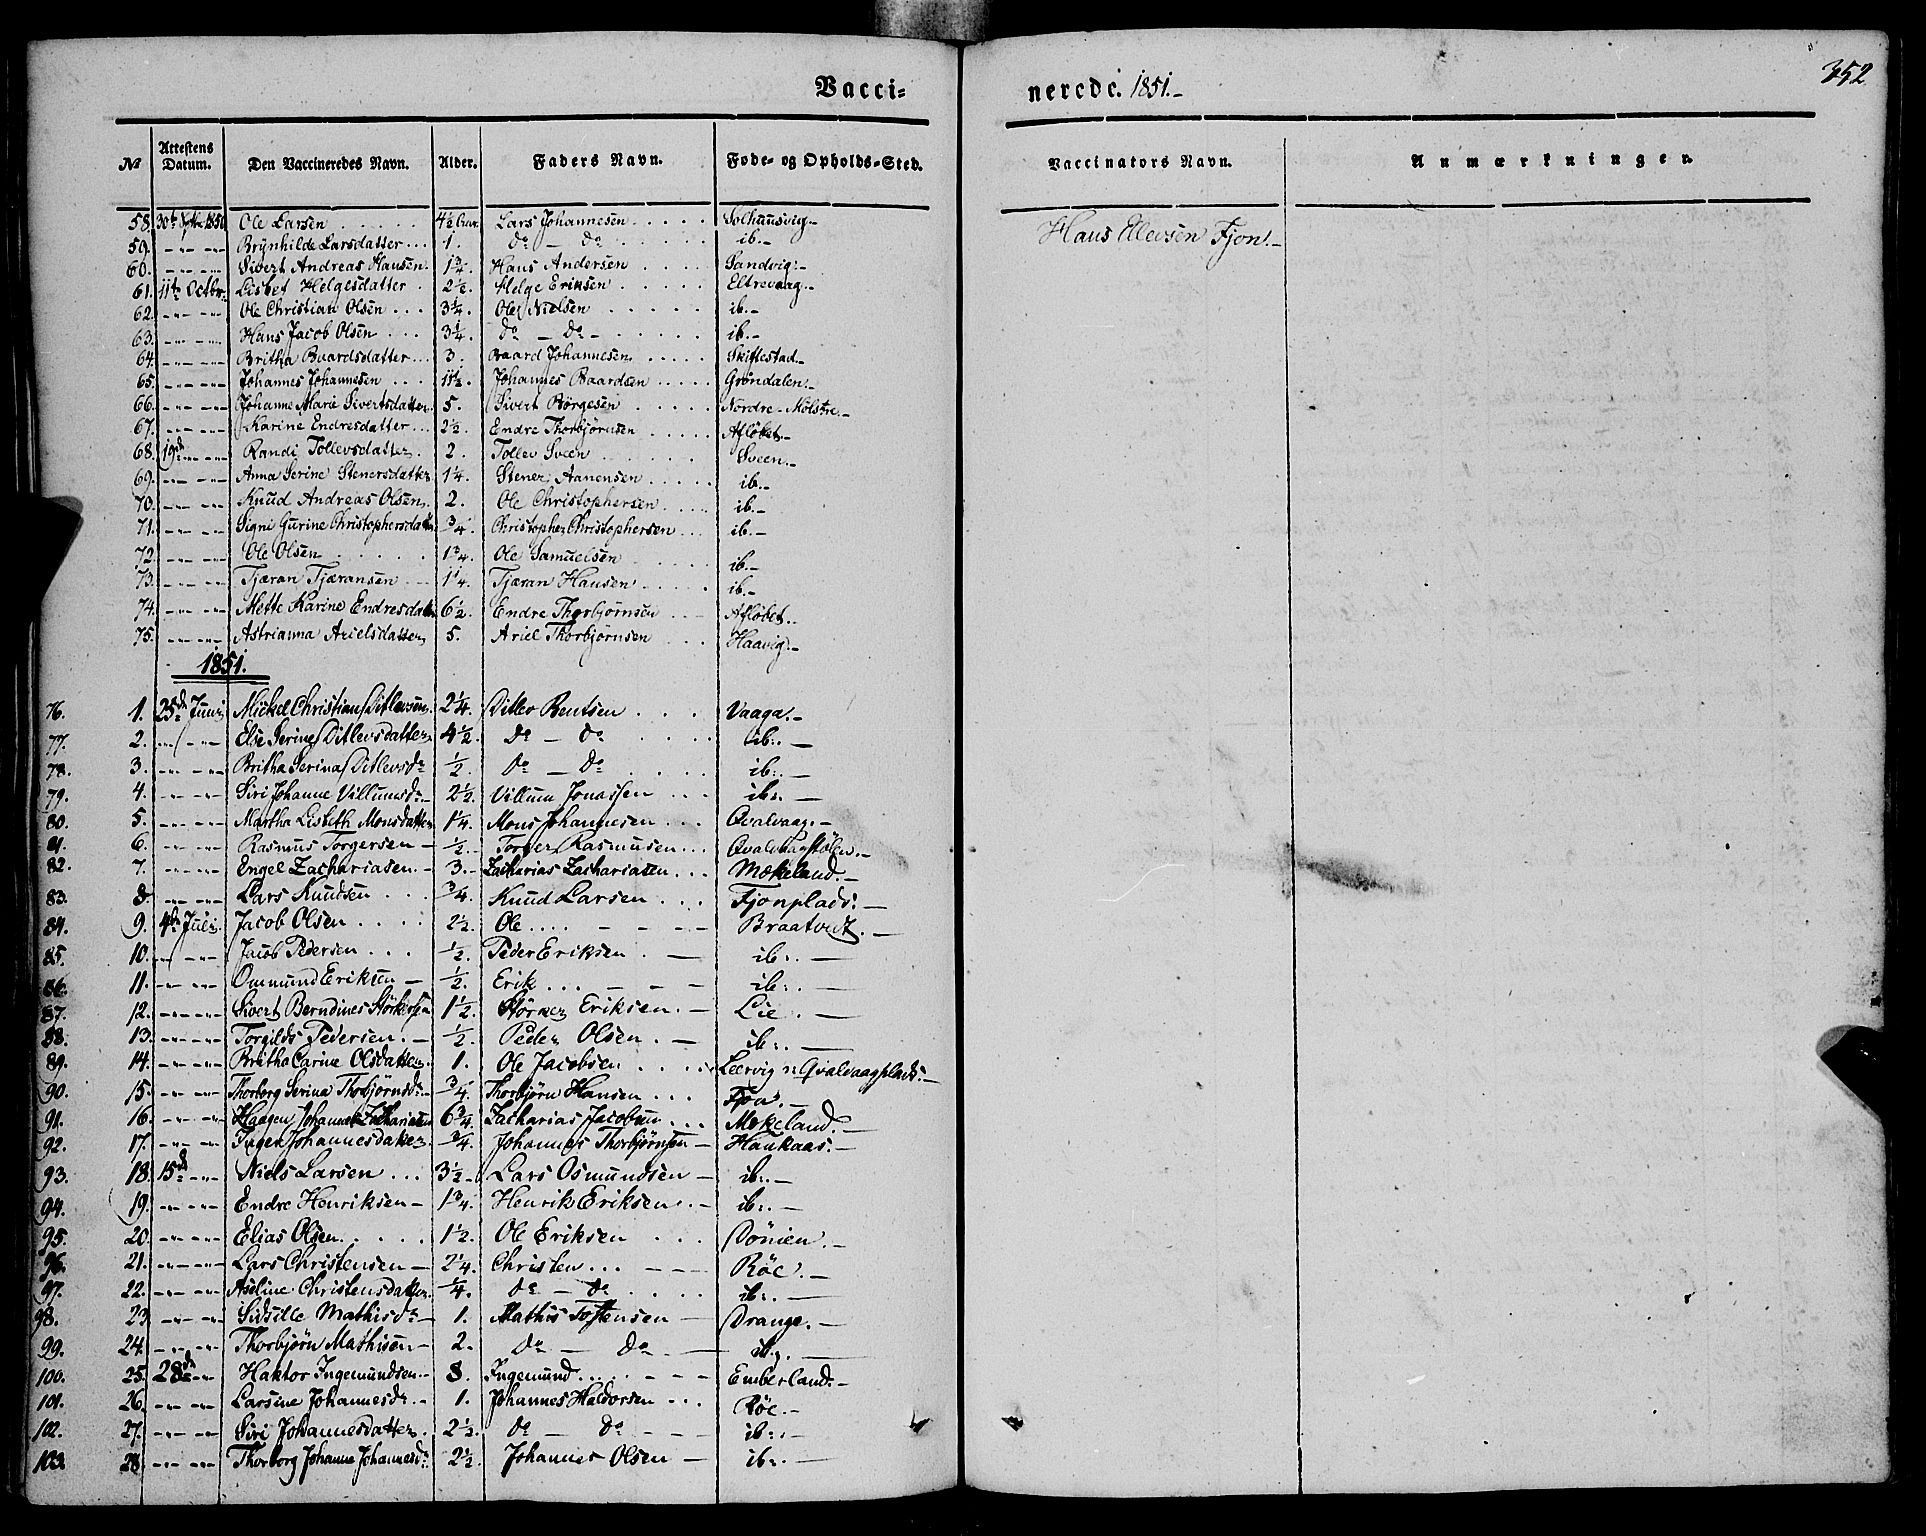 Vacci- neredc. 1851.-
352
No Attestens Datum. Den Vaccineredes Navn. Alder. Faders Navn. Føde- og Opholds-Sted. Vaccinators Navn. Anmærkninger.
58. 30te Septbr 1850 Ole Larsen . . . . 4½ Lars Johannesen . . . . Solhuusvig.- Hans Ellevsen Fjon.-
59. -"- -"- Brynhilde Larsdatter . . . 1. do - do . . . . ib.-
60. -"- -"- Sivert Andreas Hansen. 1¾. Hans Andersen . . . . Sandvig.-
61. 11te Octbr. Lisbet Helgesdatter . 2½. Helge Eriksen . . . . Eltrevaag.-
62. -"- -"- Ole Christian Olsen . . . 3¼. Ole Nielsen . . . . ib.-
63. -"- -"- Hans Jacob Olsen . . . 3¼. do - do - . . . . ib.-
64. -"- -"- Britha Baardsdatter . . . 3. Baard Johannesen . . . . Skiftestad.-
65. -"- -"- Johannes Johannesen . . . 11½. Johannes Baardsen . . . . Grøndalen.-
66. -"- -"- Johanne Marie Sivertsdatter. 5. Sivert Børgesen . . . . Nordre-Mölstre.-
67. -"- -"- Karine Endresdatter . . . 2½. Endre Thorbjørnsen . . . . Afløbet.-
68. 19de -"- Randi Tollevsdatter . 2. Tollev Sveen . . . . Sveen.-
69. -"- -"- Anna Serine Stenersdatter 1¼. Stener Aanensen . . . . ib.-
70. -"- -"- Knud Andreas Olsen. 2. Ole Christophersen . . . . ib.-
71. -"- -"- Signi Gurine Christophersdatter ¾. Christopher Christophersen . . . ib.-
72. -"- -"- Ole Olsen . . . . 1¾. Ole Samuelsen . . . . ib.-
73. -"- -"- Tjæran Tjæransen 1¼. Tjæran Hansen . . . . ib.-
74. -"- -"- Mette Karine Endresdatter 6½. Endre Thorbjørnsen Afløbet.
75. -"- -"- Astrianna Arielsdatter 5. Ariel Thorbjørnsen . . . Haavig.-
1851.
76. 1. 25de Juni Mickel Christian Ditlevsen. 2¼. Ditlev Bentsen . . . Vaaga.-
77. 2. -"- -"- Else Serine Ditlevsdatter 4½. do - do . . . . ib.-
78. 3. -"- -"- Britha Serina Ditlevsdr ½. do - do . . . . ib.-
79. 4. -"- -"- Siri Johanne Villumsdr. 2½. Villum Jonassen . . . ib.-
80. 5. -"- -"- Martha Lisbeth Monsdatter 1¼. Mons Johannesen . . . Qvalvaag.-
81. 6. -"- -"- Rasmus Torgersen - ½. Torger Rasmusen . . . Qvalvaagstølen.-
82. 7. -"- -"- Engel Zachariasen. - 3. Zacharias Zachariasen . . . Mækeland.-
83. 8. -"- -"- Lars Knudsen . . . ¾. Knud Larsen . . . Fjonplads. -
84. 9. 4de Juli. Jacob Olsen . . . . 2½. Ole . . . . - - - Braatvedt. -
85. 10. -"- -"- Jacob Pedersen . . . ½. Peder Eriksen . - ib. -
86. 11. -"- -"- Ommund Eriksen - ½. Erik . . . - - - ib. -
87. 12. -"- -"- Sivert Berndines Størkersen 1½. Størker Eriksen. - Lie. -
88. 13. -"- -"- Torgilds Pedersen. - ½. Peder Olsen . - ib. -
89. 14. -"- -"- Britha Carine Olsdatter. 1. Ole Jacobsen . . . . Leervig n. Qvalvaagplads. -
90. 15. -"- -"- Thorborg Serina Thorbjørnsdr. ¾. Thorbjørn Hansen . . . Fjon. -
91. 16. -"- -"- Haagen Johannes Zachariasen 6¾. Zacharias Jacobsen . . . Mekeland. -
92. 17. -"- -"- Inger Johannesdatter. ¾. Johannes Thorbjørnsen - Haukaas. -
93. 18. 15de -"- Niels Larsen . . . 3½. Lars Osmundsen - ib. -
94. 19. -"- -"- Endre Henriksen - 1¾. Henrik Eriksen . - ib. -
95. 20. -"- -"- Elias Olsen. . . . . 1½. Ole Eriksen . . . Dönien. -
96. 21. -"- -"- Lars Christensen - 2¼. Christen . . . - - - Röe. -
97. 22. -"- -"- Aseline Christensdatter. ¼. do - do . . . . ib. -
98. 23. -"- -"- Sidsille Mathisdr - 1. Mathis Tostensen - Drange. -
99. 24. -"- -"- Thorbjørn Mathisen - 2. do - do - ib. -
100. 25. 28de -"- Haktor Ingemundsen. 8. Ingemund . . . . - - - Emberland. -
101. 26. -"- -"- Larsine Johannesdr. - 1. Johannes Haldorsen . . . Röe. -
102. 27. -"- -"- Siri Johannesdatter. 2½. do - do - - - ib. -
103. 28. -"- -"- Thorborg Johanne Johannesdr. 2½. Johannes Olsen - ib. -